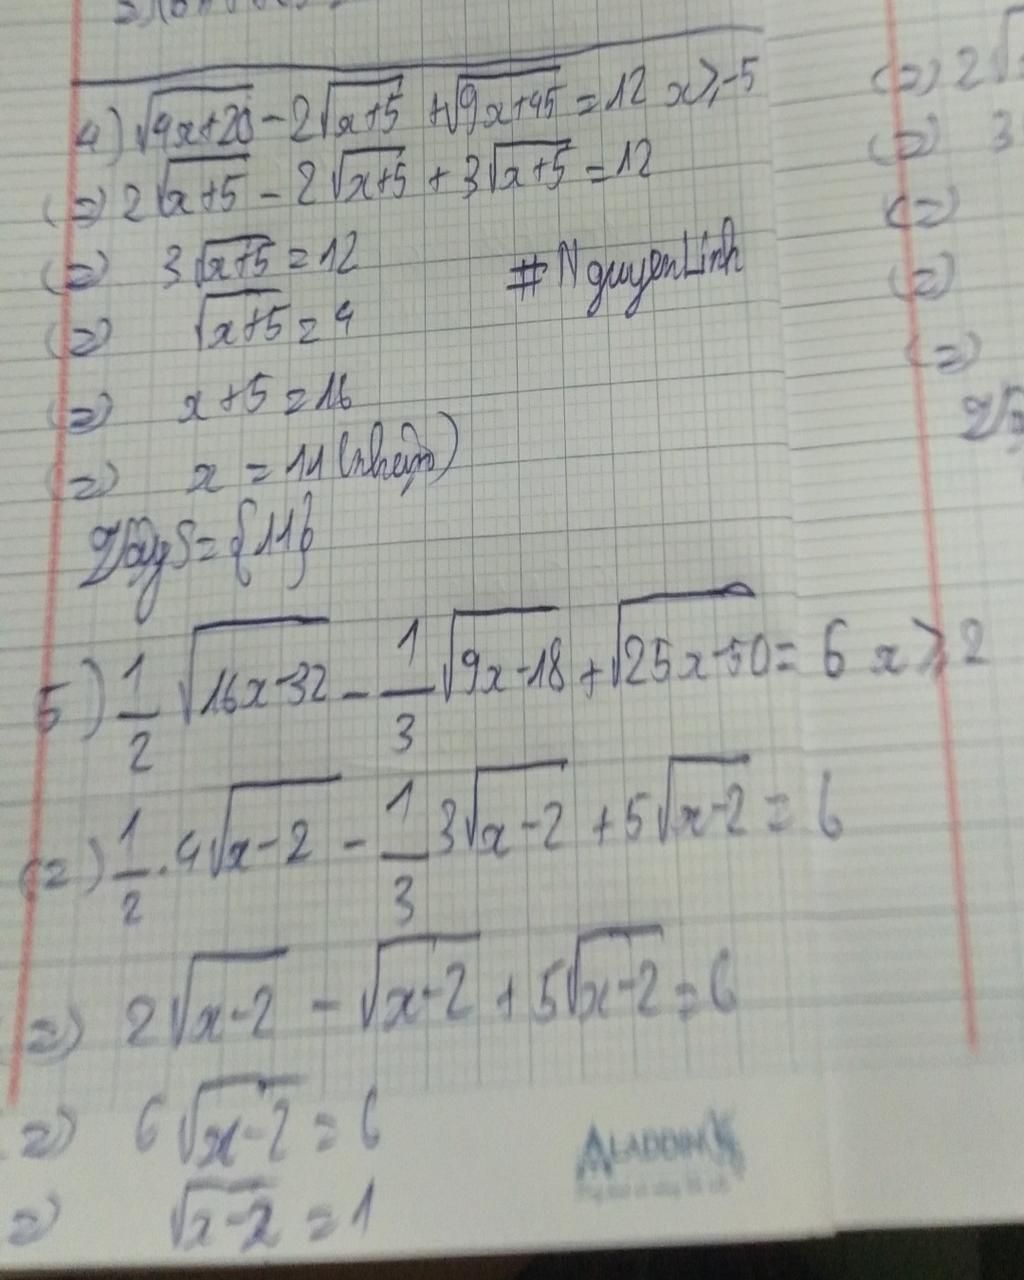 4) √4x+20 - 2√x+5 + √9x+45 = 12 x ⩾ -5
(=) 2√x+5 - 2√x+5 + 3√x+5 = 12
(=) 3√x+5 = 12
#NguyenLinh
(=) √x+5 = 4
(=) x+5 = 16
(=) x = 11 (nhận)
Vậy S = {11}
5) 1/2 √16x-32 - 1/3 √9x-18 + √25x-50 = 6 x ⩾ 2
(=) 1/2 . 4√x-2 - 1/3 3√x-2 + 5√x-2 = 6
=) 2√x-2 - √x-2 + 5√x-2 = 6
=) 6√x-2 = 6
=) √x-2 = 1
(=) 2√
(=) 3
(=)
(=)
(=)
ALADDIN